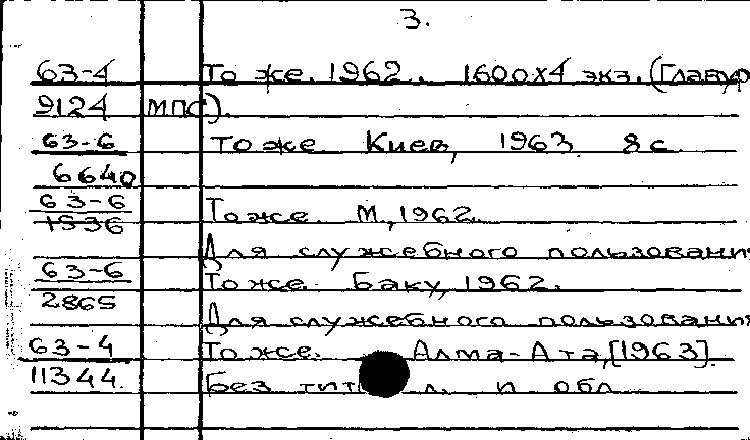 3.
63-4 То же. 1962. 1600х4 экз. (Главур
9124 МПС).
63-6 То же Киев, 1963 8 с
6640
63-6
1536 То же. М., 1962.
Для служебного пользовани
63-6 То же. Баку, 1962.
2865
Для служебного пользовани
63-4 То же. Алма-Ата, [1963].
11344. Без тит л. и обл